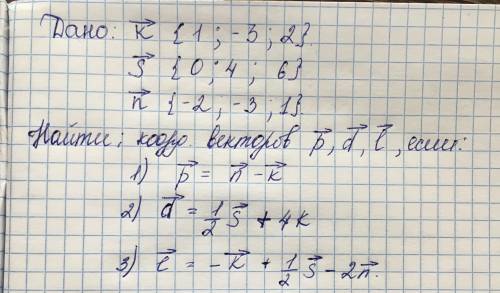 Дано: K⃗ {1; -3; 2}.
S⃗ {0; 4; 6}
n⃗ {-2; -3; 1}.
Найти; коорд. векторов p⃗, d⃗, l⃗, если:
1) p⃗ = n⃗ - k⃗
2) d⃗ = 1/2 S⃗ + 4k
3) l⃗ = -k⃗ + 1/2 S⃗ - 2n⃗.